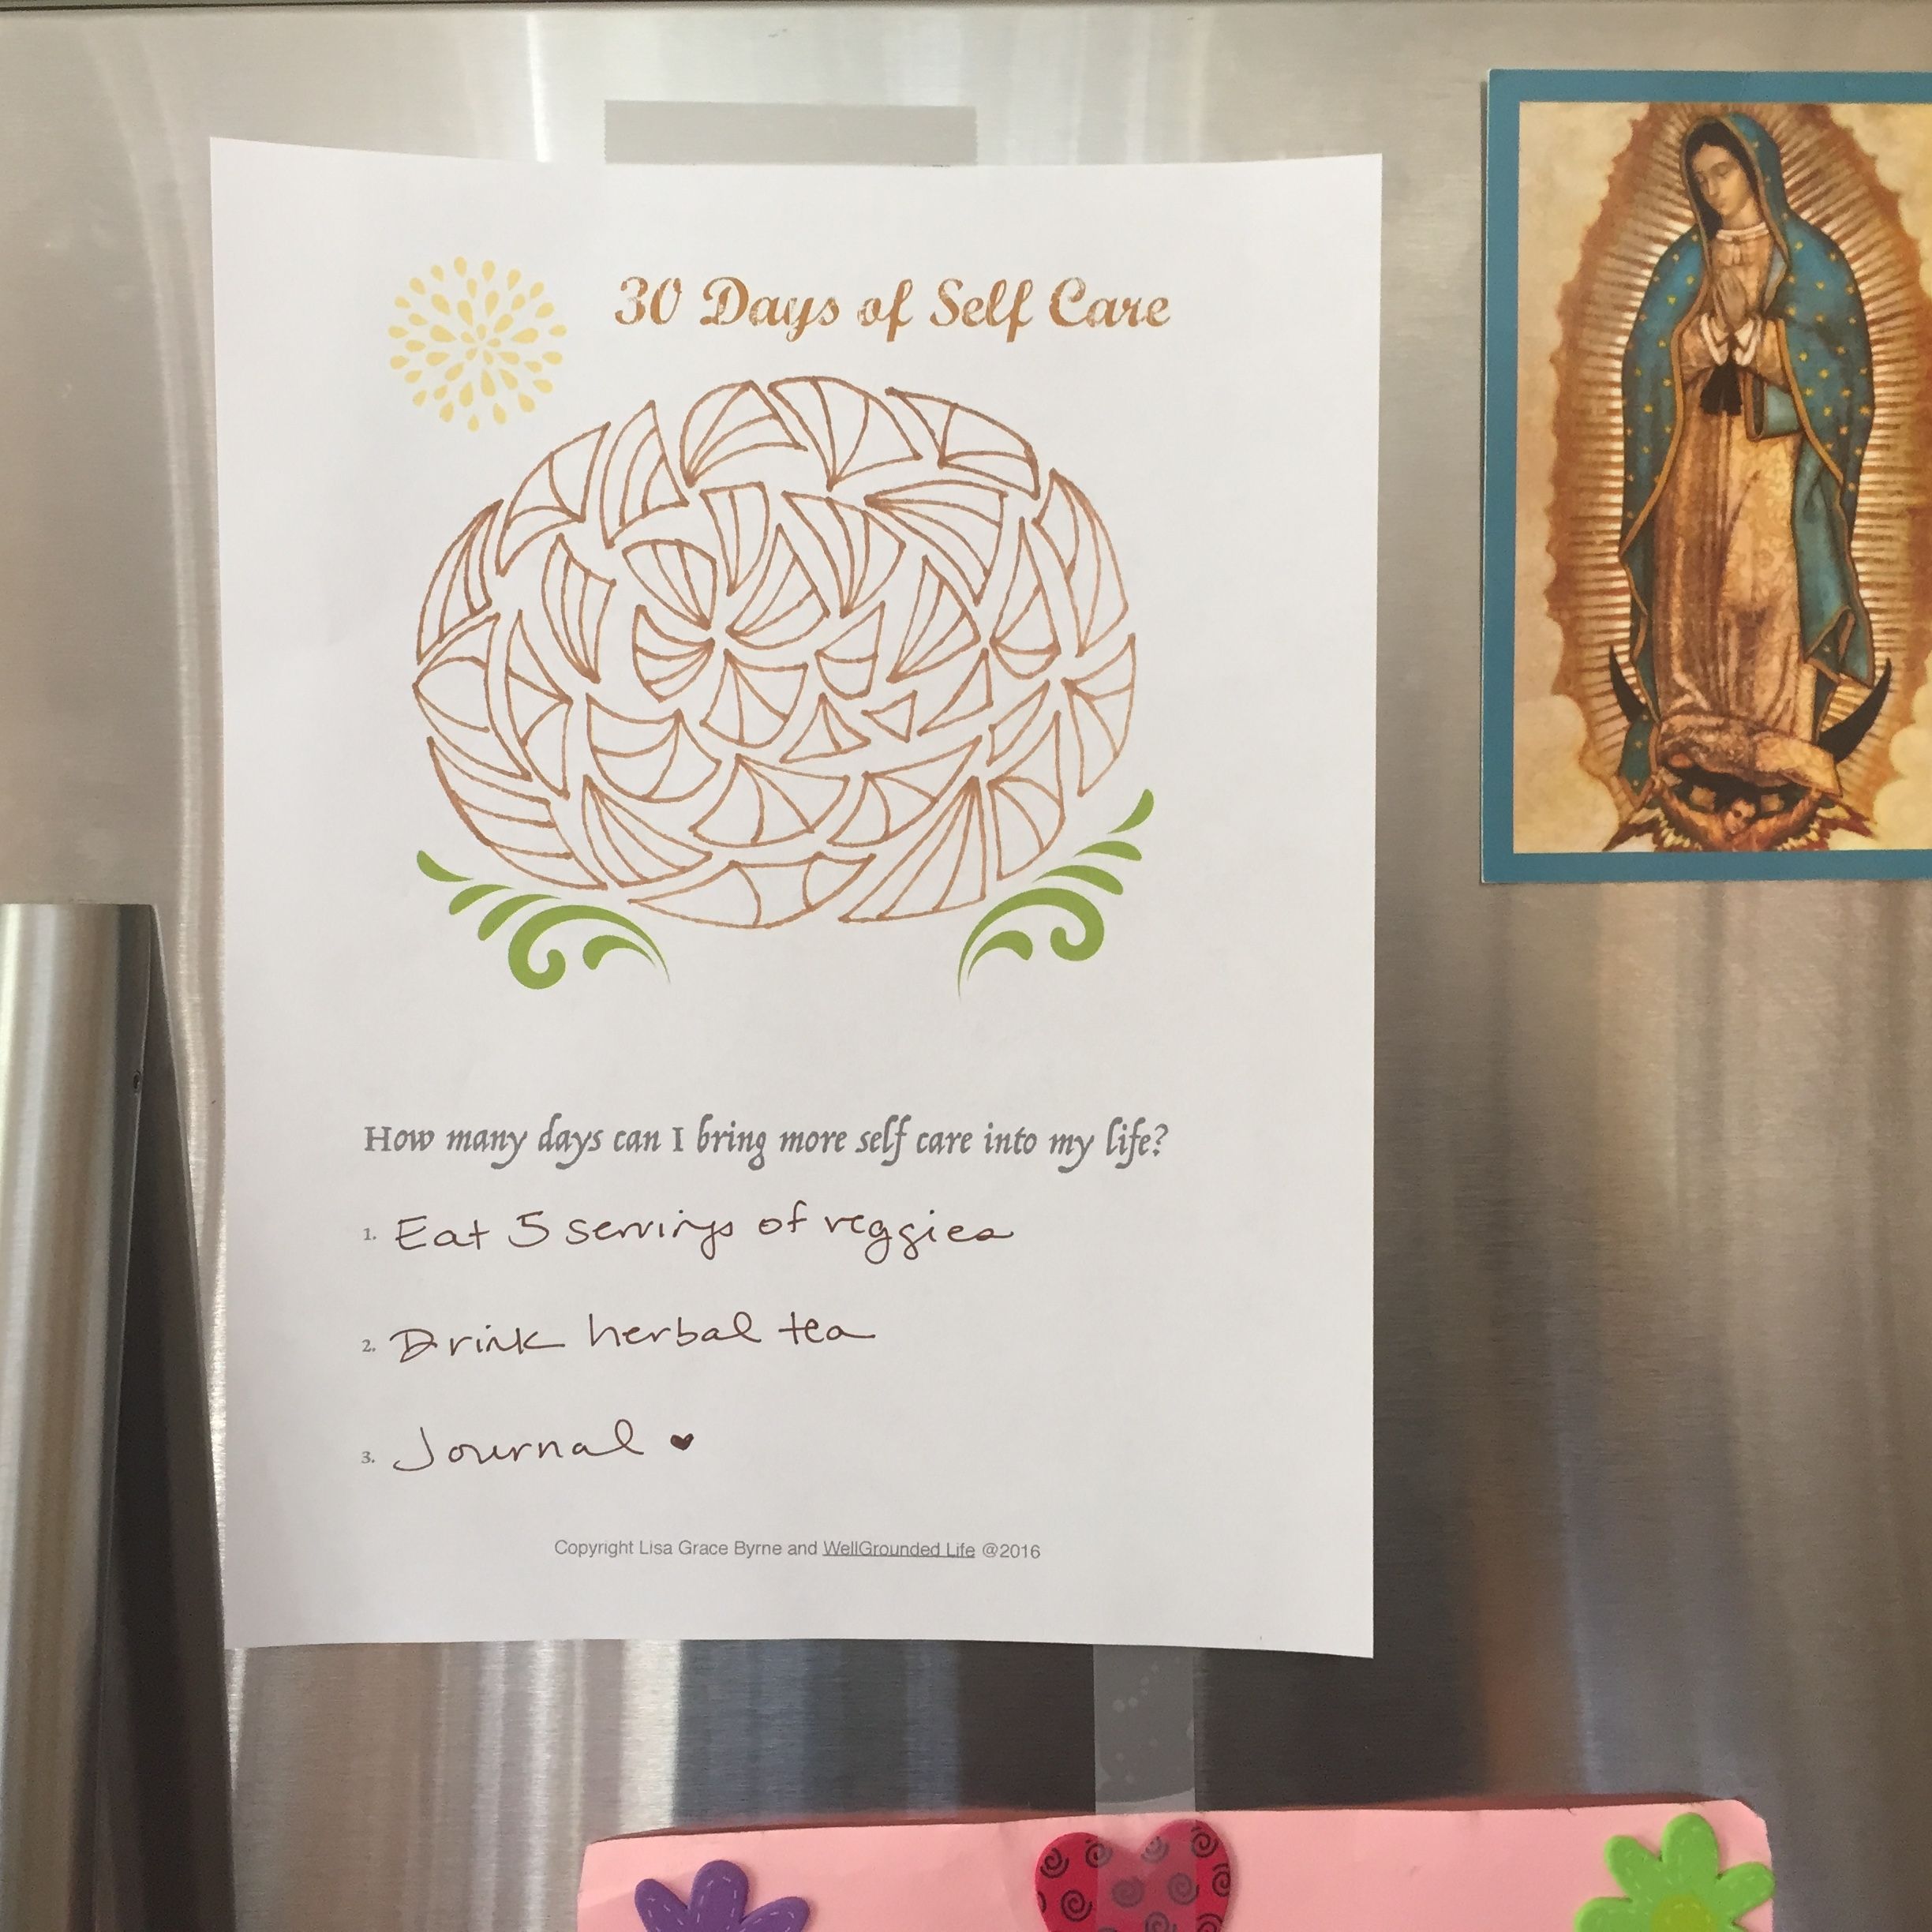 30 Days of Self Care
How many days can I bring more self care into my life?
1. Eat 5 servings of veggies
2. Drink herbal tea
3. Journal ♥
Copyright Lisa Grace Byrne and WellGrounded Life @2016